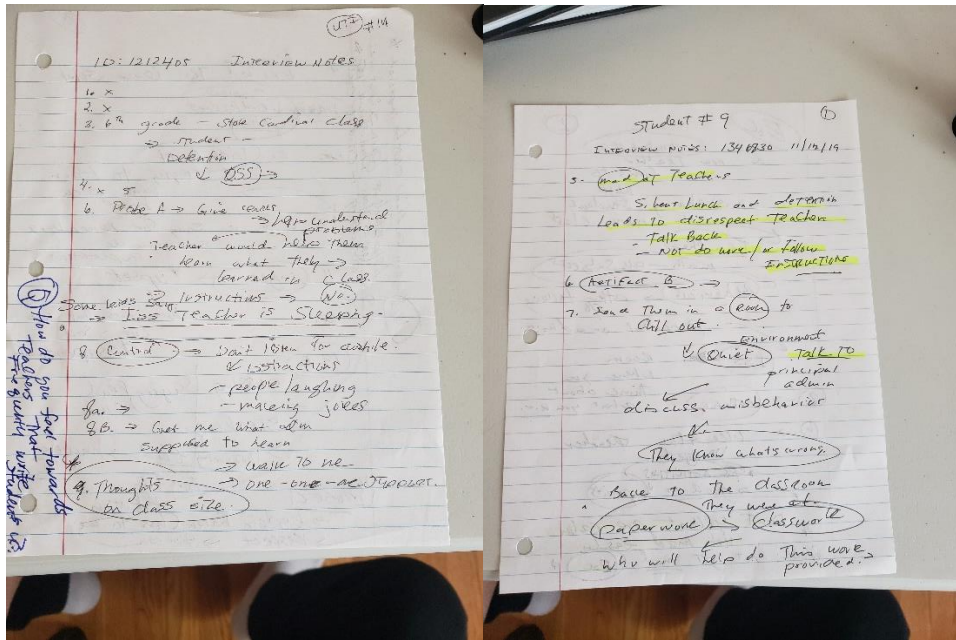 #14
ID: 1212405 Interview Notes
1. x
2. x
3. 6th grade – Cardinal class
→ student –
Detention
↓ OSS →
4. x 5.
6. Probe A → Give
→ understand
problems
Teacher would help them
learn what they →
learned in class.
Some kids say Instructions → No.
→ ISS Teacher is sleeping.
8 Control → Don't listen for awhile.
↙ instructions
– people laughing
– making jokes
8a. →
8B. → Get me what am
supposed to learn
→ walk to me
9. Thoughts → one-one-one support.
on class size.
Q How do you feel towards
Teachers that
frequently write
students up?
Student # 9 1
Interview Notes: 11/12/19
5. mad at Teachers
Silent Lunch and detention
Leads to disrespect Teacher
- Talk Back
- Not do work / or follow
Instructions
6. Artifact B →
7. Send Them in a Room to
Chill out.
environment
↙ Quiet Talk To
principal
admin
discuss misbehavior
They know whats wrong.
Back to The classroom
They were at.
paperwork → classwork
Who will help do This work
provided.